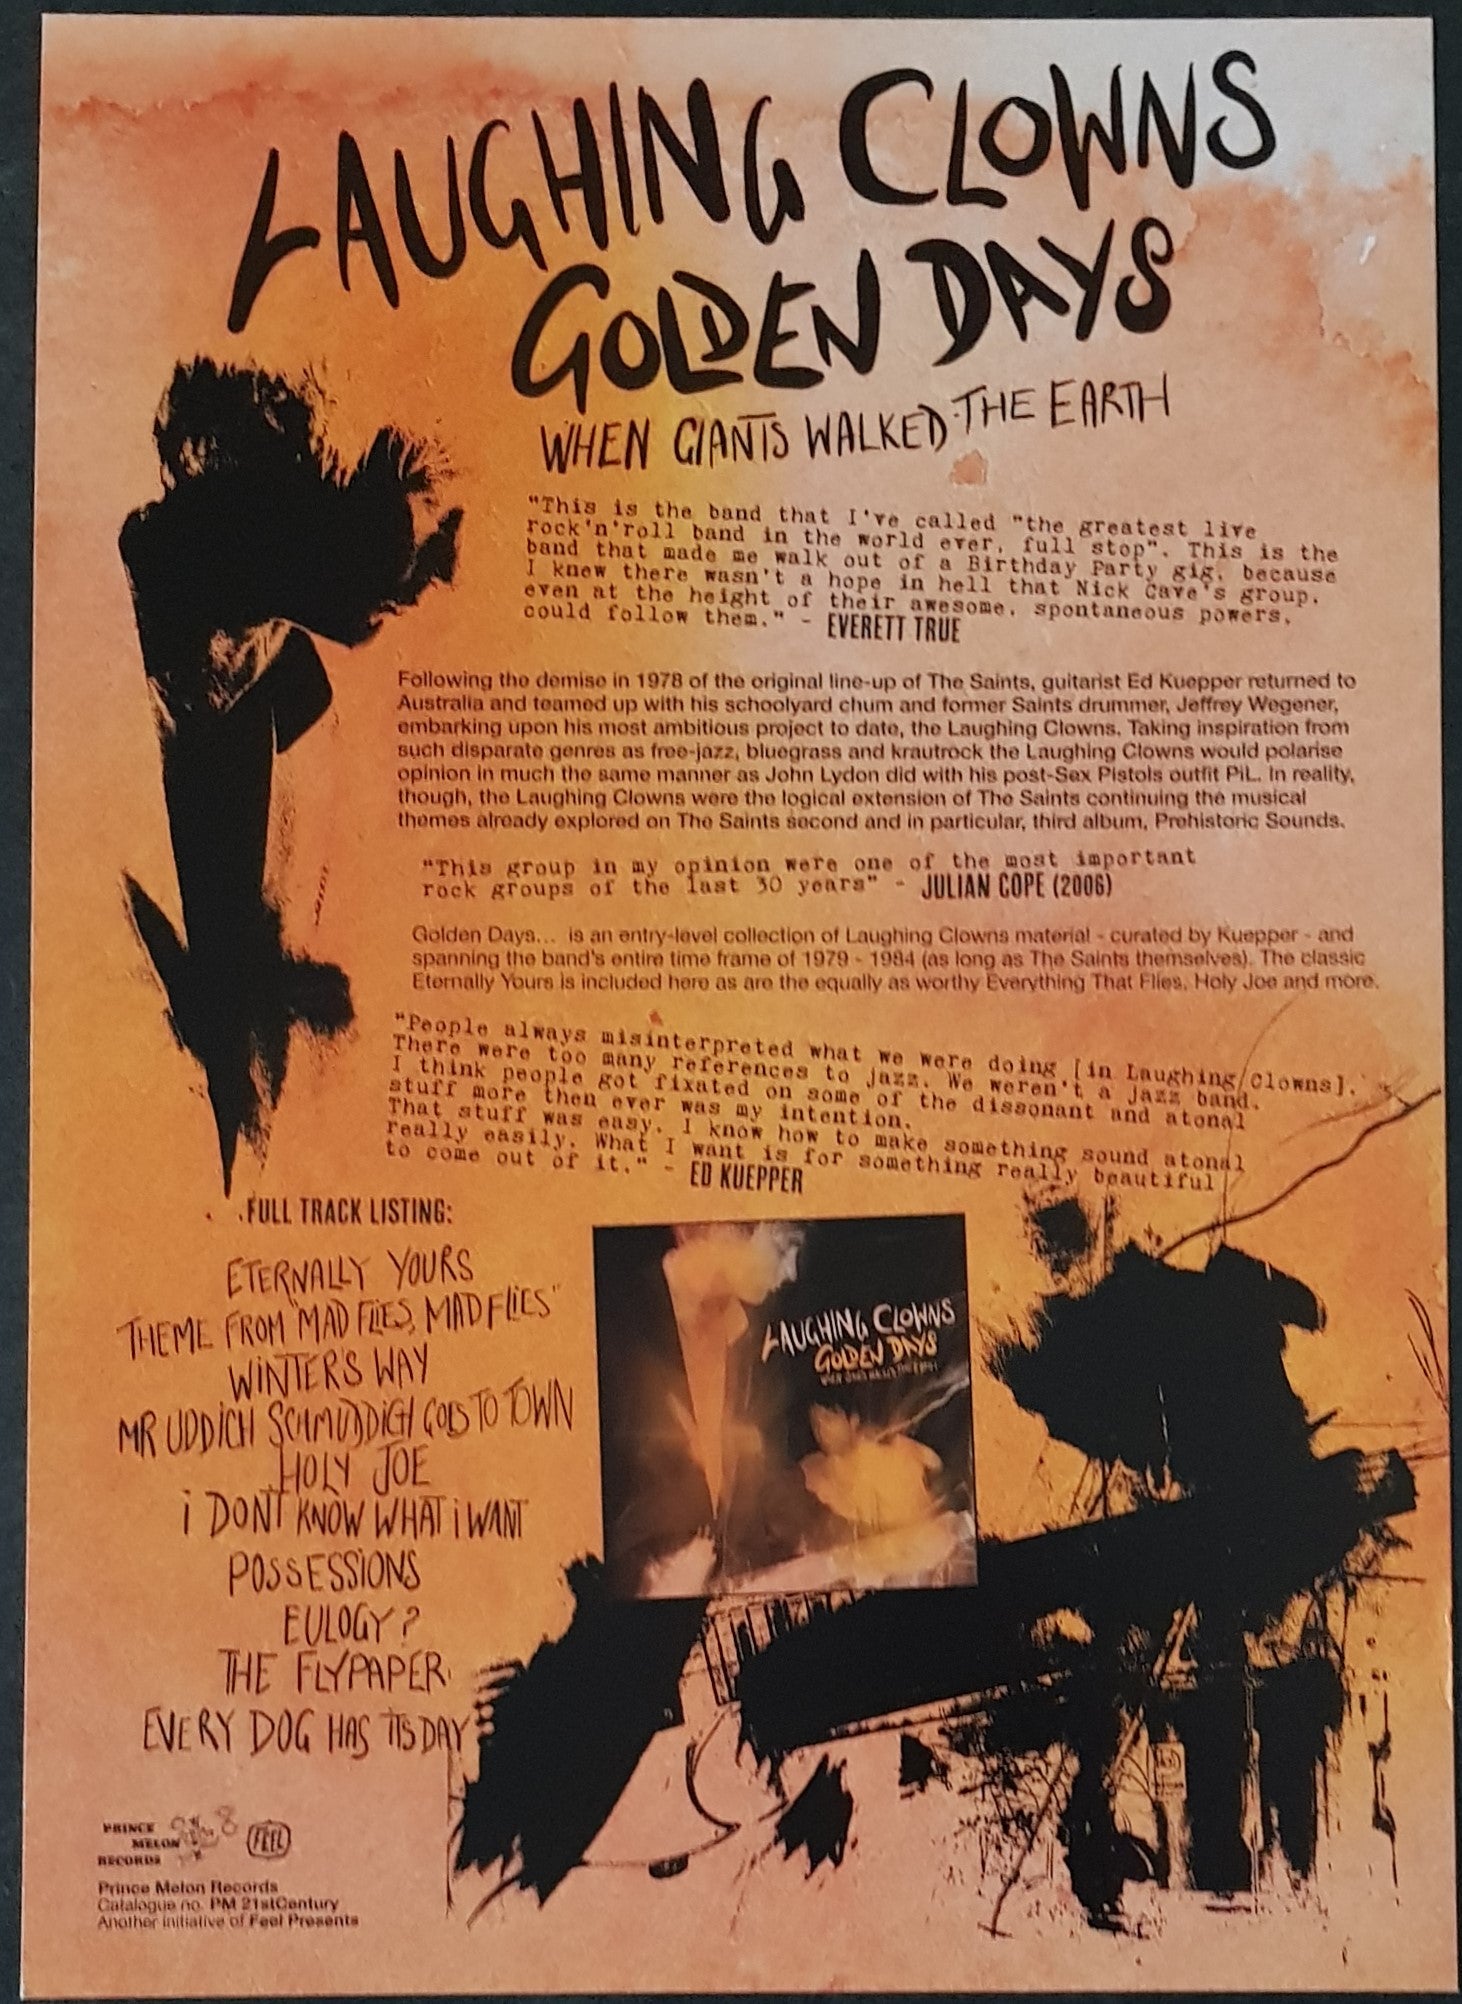 LAUGHING CLOWNS
GOLDEN DAYS
WHEN GIANTS WALKED THE EARTH
"This is the band that I've called "the greatest live
rock'n'roll band in the world ever, full stop". This is the
band that made me walk out of a Birthday Party gig, because
I knew there wasn't a hope in hell that Nick Cave's group,
even at the height of their awesome, spontaneous powers,
could follow them." - EVERETT TRUE
Following the demise in 1978 of the original line-up of The Saints, guitarist Ed Kuepper returned to
Australia and teamed up with his schoolyard chum and former Saints drummer, Jeffrey Wegener,
embarking upon his most ambitious project to date, the Laughing Clowns. Taking inspiration from
such disparate genres as free-jazz, bluegrass and krautrock the Laughing Clowns would polarise
opinion in much the same manner as John Lydon did with his post-Sex Pistols outfit PiL. In reality,
though, the Laughing Clowns were the logical extension of The Saints continuing the musical
themes already explored on The Saints second and in particular, third album, Prehistoric Sounds.
"This group in my opinion were one of the most important
rock groups of the last 30 years" - JULIAN COPE (2006)
Golden Days... is an entry-level collection of Laughing Clowns material - curated by Kuepper - and
spanning the band's entire time frame of 1979 - 1984 (as long as The Saints themselves). The classic
Eternally Yours is included here as are the equally as worthy Everything That Flies, Holy Joe and more.
"People always misinterpreted what we were doing [in Laughing Clowns].
There were too many references to jazz. We weren't a jazz band.
I think people got fixated on some of the dissonant and atonal
stuff more then ever was my intention.
That stuff was easy. I know how to make something sound atonal
really easily. What I want is for something really beautiful
to come out of it." - ED KUEPPER
FULL TRACK LISTING:
ETERNALLY YOURS
THEME FROM "MAD FLIES, MAD FLIES"
WINTER'S WAY
MR UDDICH SCHMUDDICH GOES TO TOWN
HOLY JOE
i DON'T KNOW WHAT i WANT
POSSESSIONS
EULOGY?
THE FLYPAPER
EVERY DOG HAS ITS DAY
LAUGHING CLOWNS
GOLDEN DAYS
WHEN GIANTS WALKED THE EARTH
PRINCE
MELON
RECORDS
FEEL
Prince Melon Records
Catalogue no. PM 21stCentury
Another initiative of Feel Presents